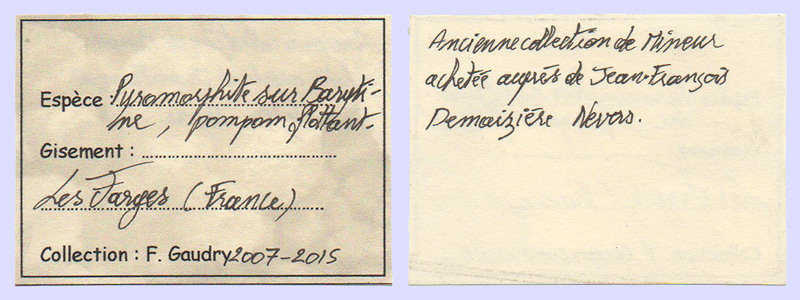 Espèce : Pyromorphite sur Baryti-
ne, pompom flottant.
Gisement :
Les Farges (France)
Collection : F. Gaudry 2007-2015
Ancienne collection de Mineur
achetée auprés de Jean-François
Demaizière Nevers.